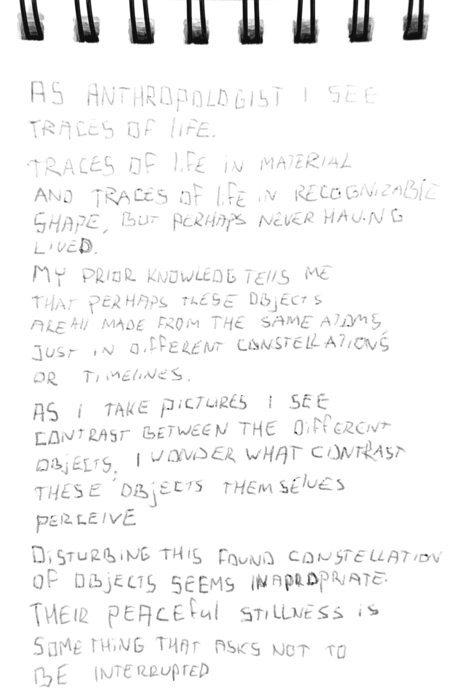 AS ANTHROPOLOGIST I SEE
TRACES OF LIFE.
TRACES OF LIFE IN MATERIAL
AND TRACES OF LIFE IN RECOGNIZABLE
SHAPE, BUT PERHAPS NEVER HAVING
LIVED.
MY PRIOR KNOWLEDG TELLS ME
THAT PERHAPS THESE OBJECTS
ARE All MADE FROM THE SAME ATOMS,
JUST IN DIFFERENT CONSTELLATIONS
OR TIMELINES.
AS I TAKE PICTURES I SEE
CONTRAST BETWEEN THE DIFFERENT
OBJECTS. I WONDER WHAT CONTRAST
THESE OBJECTS THEMSELVES
PERCEIVE
DISTURBING THIS FOUND CONSTELLATION
OF OBJECTS SEEMS INAPROPRIATE.
THEIR PEACEFul STILLNESS IS
SOMETHING THAT ASKS NOT TO
BE INTERRUPTED